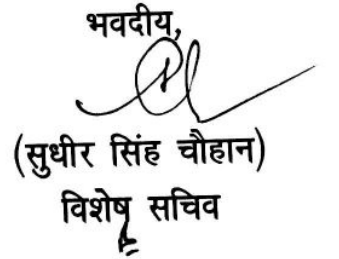 भवदीय,
(सुधीर सिंह चौहान)
विशेष सचिव